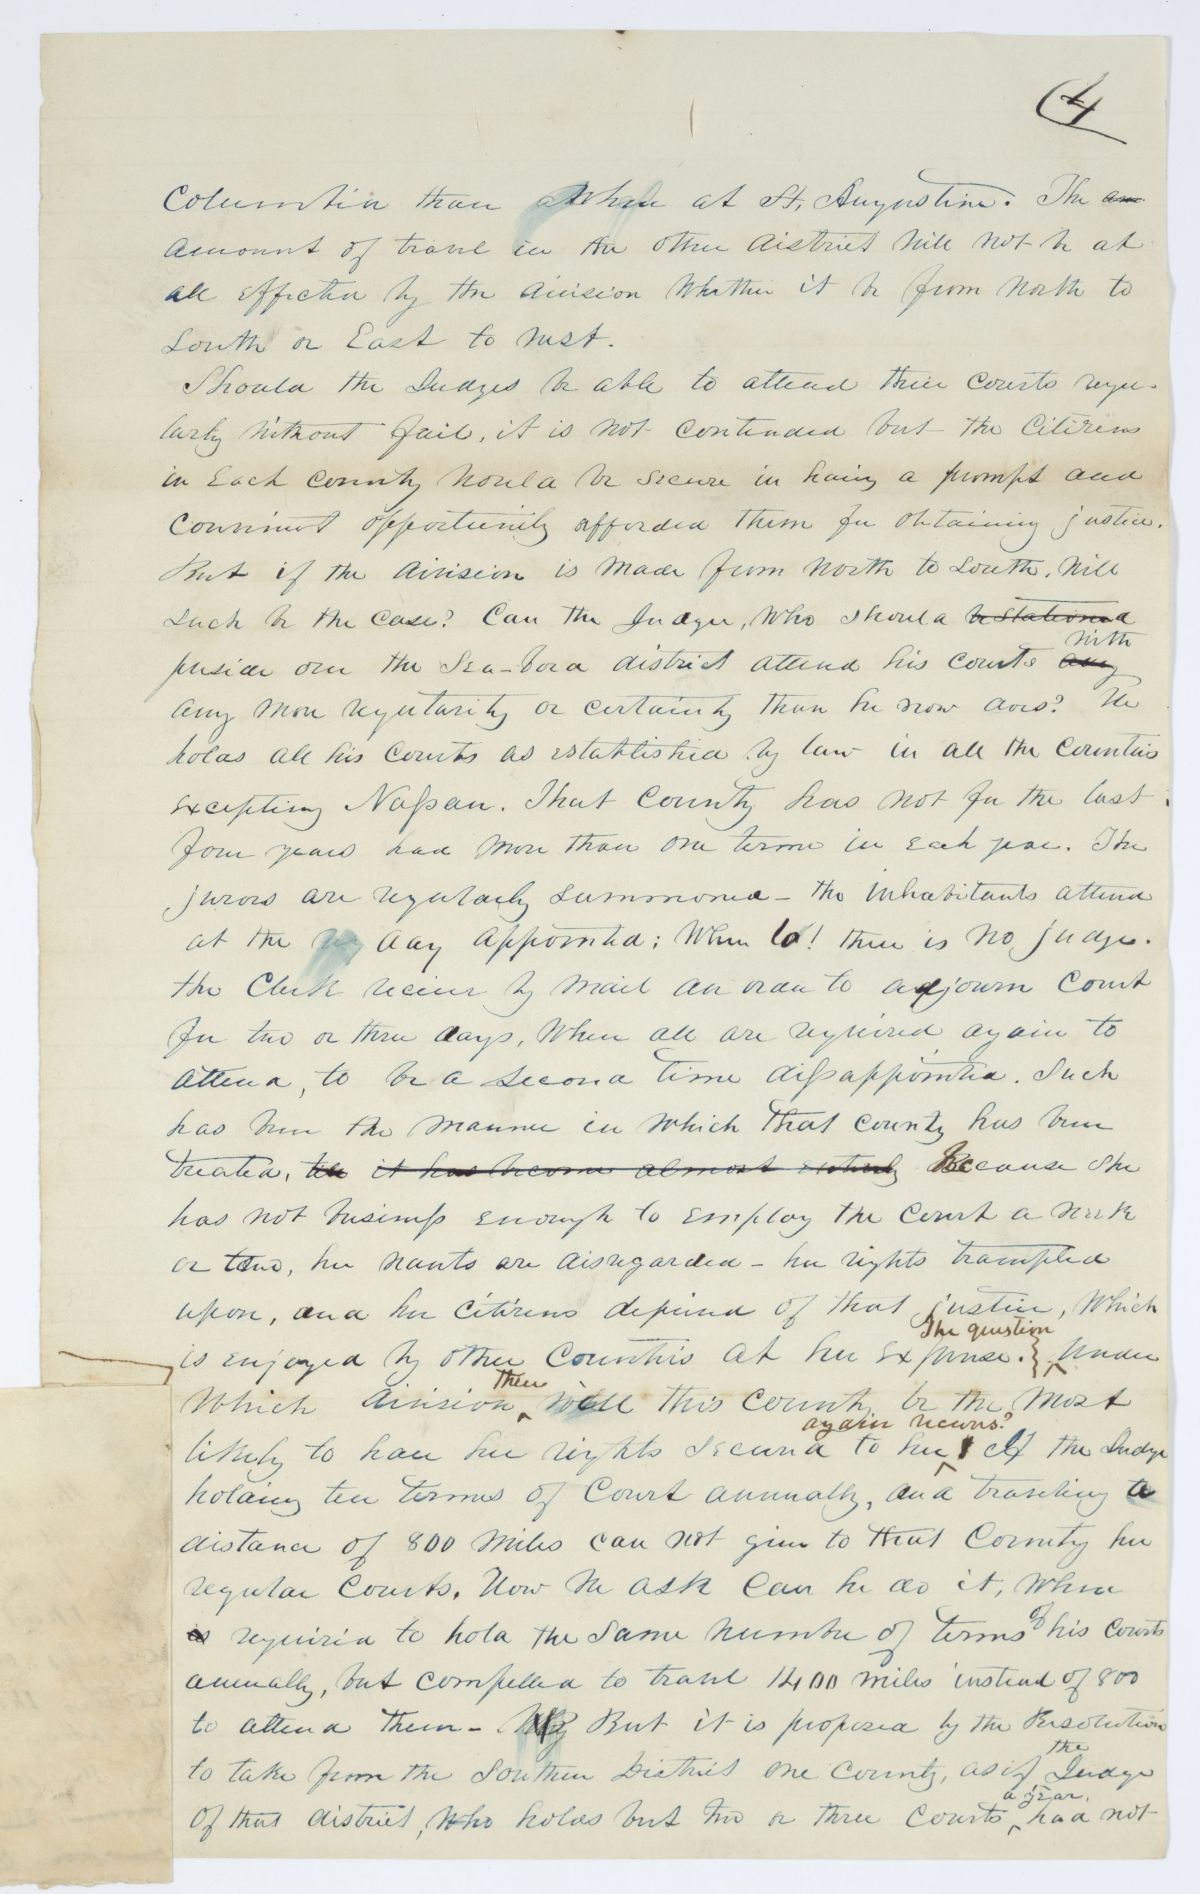 4
Columbia than when at St. Augustine. The am
amount of travel in the other district will not be at
all effected by the division whether it be from North to
South or East to West.
Should the Judges be able to attend their courts regu-
larly without fail, it is not contended but the Citizens
in Each county would be secure in having a prompt and
convenient opportunity afforded them for obtaining justice.
But if the division is made from North to South, will
such be the case? Can the Judge, who should be stationed
preside over the Sea-bord district attend his courts any with
any more regularity or certainty than he now does? He
holds all his Courts as established by law in all the Counties
excepting Nassau. That County has not for the last
four years had more than one term in each year. The
jurors are regularly summoned - the inhabitants attend
at the day appointed; when lo! there is no judge.
the Clerk receives by mail an order to adjourn Court
for two or three days, when all are required again to
attend, to be a second time dissappointed. Such
has been the manner in which that county has been
treated, it has become almost entirely Because she
has not business enough to employ the Court a week
or two, her wants are disregarded - her rights trampled
upon, and her citizens deprived of that justice, which
is enjoyed by other Counties at her expense. } The question Under
which division, then will this County be the most
likely to have her rights secured to her again recurs? If the Judge
holding ten terms of Court annually, and traveling a
distance of 800 miles can not give to that County her
regular Courts. Now we ask can he do it, when
is required to hold the same number of terms of his Courts
annually, but compelled to travel 1400 miles instead of 800
to attend them - But it is proposed by the Resolution
to take from the Southern District one County, as if the Judge
of that district, who holds but two or three Courts a year, had not